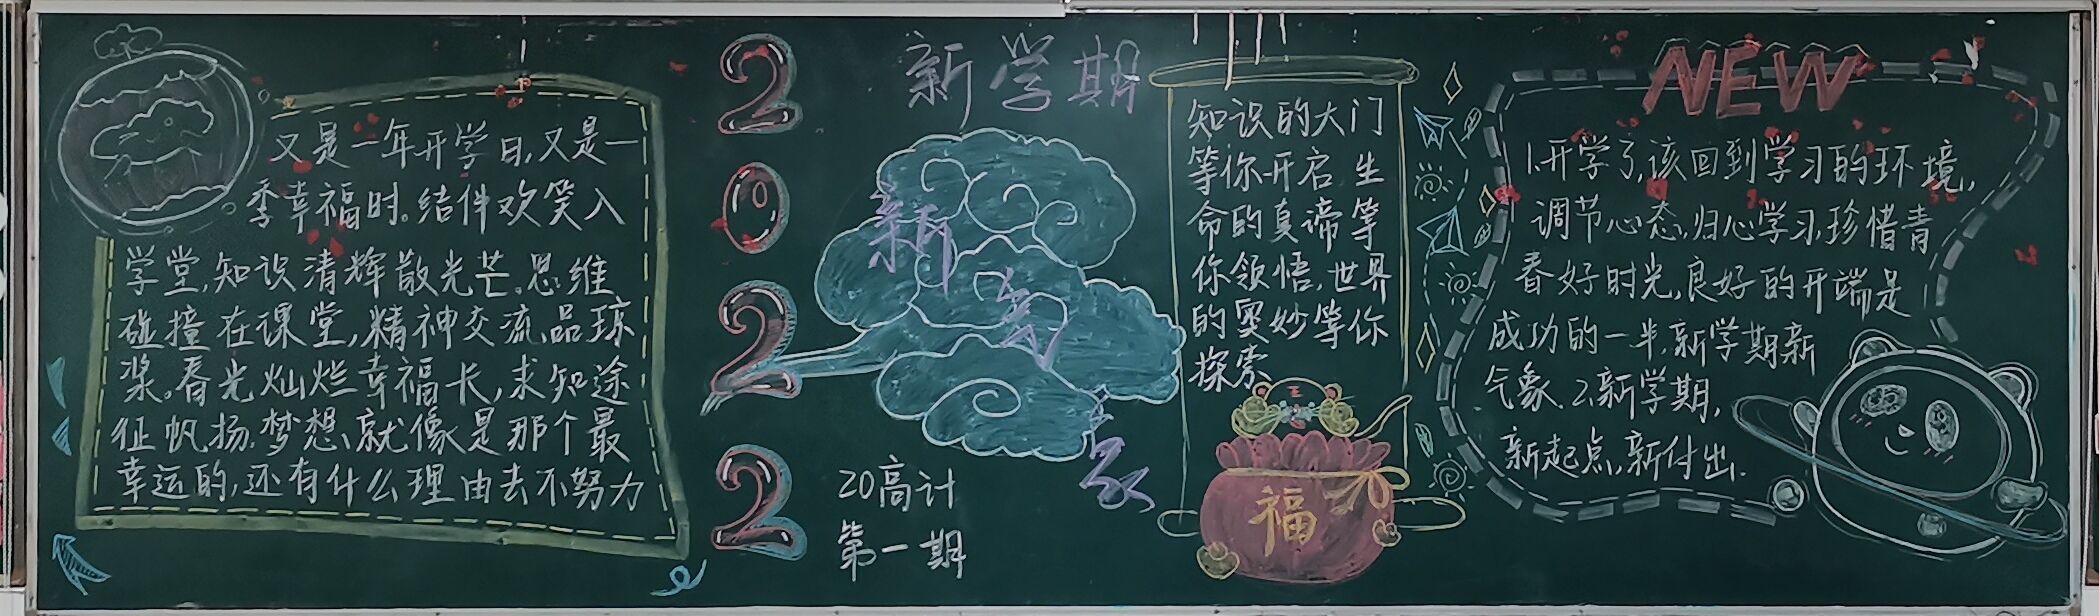 又是一年开学日,又是一
季幸福时。结伴欢笑入
学堂,知识清辉散光芒。思维
碰撞在课堂,精神交流品琼
浆。春光灿烂幸福长,求知途
征帆扬。梦想,就像是那个最
幸运的,还有什么理由去不努力
2022
新学期
新气象
20高计
第一期
知识的大门
等你开启 生
命的真谛等
你领悟,世界
的奥妙等你
探索
福
NEW
1.开学了,该回到学习的环境,
调节心态,归心学习,珍惜青
春好时光,良好的开端是
成功的一半,新学期新
气象.2.新学期,
新起点,新付出.